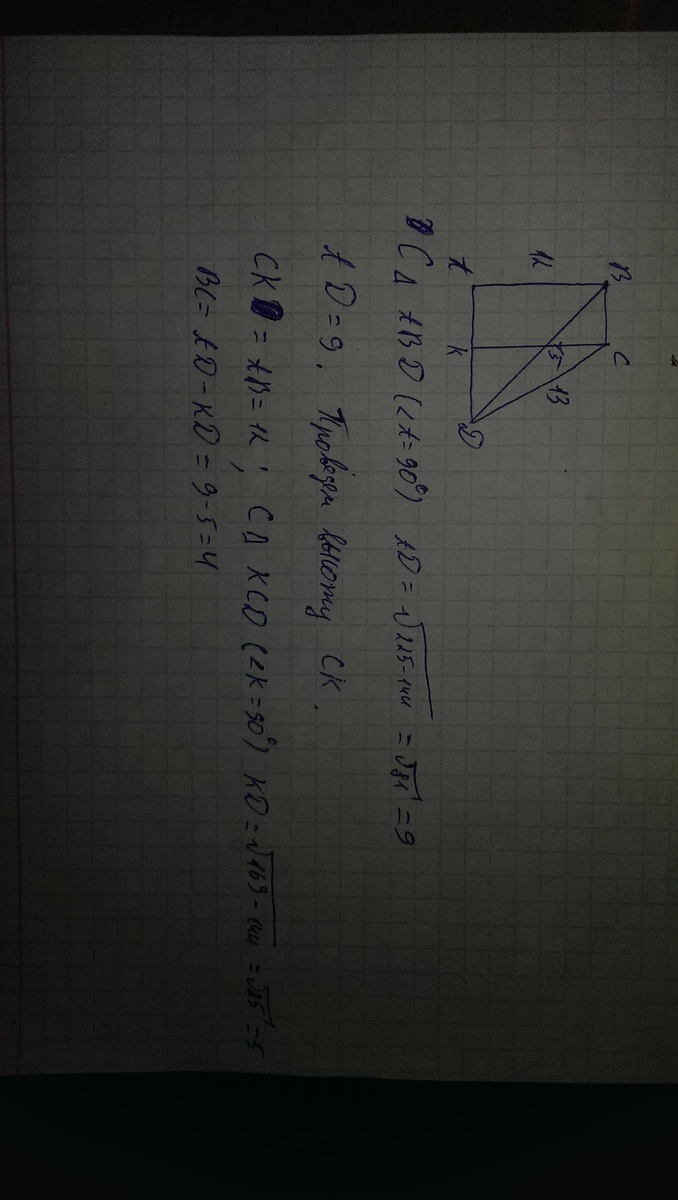 B
C
12
15
13
A
K
D
С Δ ABD (∠A=90°) AD = √225-144 = √81 = 9
AD = 9. Проведем высоту CK.
CK = AB = 12; С Δ KCD (∠K=90°) KD = √169-144 = √25 = 5
BC = AD - KD = 9-5=4